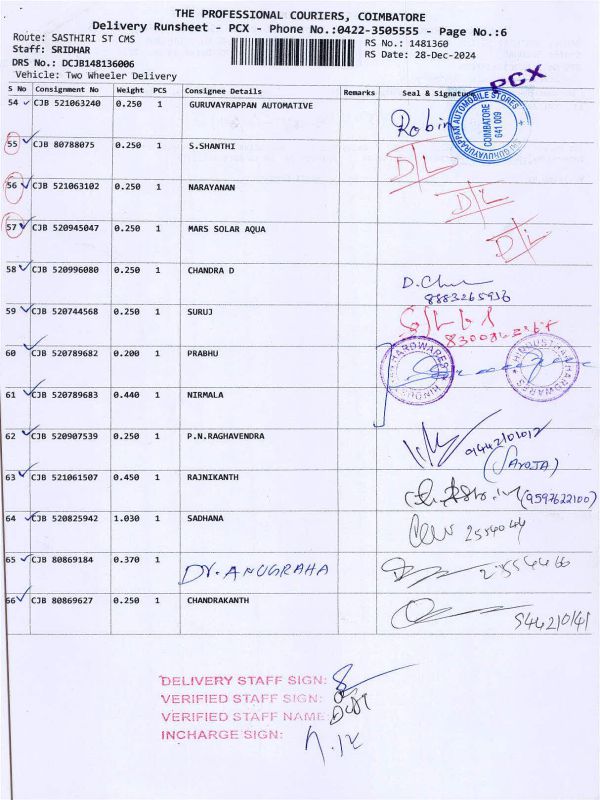 THE PROFESSIONAL COURIERS, COIMBATORE
Delivery Runsheet - PCX - Phone No.:0422-3505555 - Page No.:6
Route: SASTHIRI ST CMS
RS No.: 1481360
Staff: SRIDHAR
RS Date: 28-Dec-2024
DRS No.: DCJB148136006
Vehicle: Two Wheeler Delivery
PCX
S No Consignment No Weight PCS Consignee Details Remarks Seal & Signature
54 CJB 521063240 0.250 1 GURUVAYRAPPAN AUTOMATIVE Robin
COIMBATORE
641 009
55 CJB 80788075 0.250 1 S.SHANTHI D/L
56 CJB 521063102 0.250 1 NARAYANAN D/L
57 CJB 520945047 0.250 1 MARS SOLAR AQUA D/L
58 CJB 520996080 0.250 1 CHANDRA D
59 CJB 520744568 0.250 1 SURUJ
60 CJB 520789682 0.200 1 PRABHU
HINDUSTHAN HARDWARES
61 CJB 520789683 0.440 1 NIRMALA
62 CJB 520907539 0.250 1 P.N.RAGHAVENDRA
(SAROJA)
63 CJB 521061507 0.450 1 RAJNIKANTH (9597622100)
64 CJB 520825942 1.030 1 SADHANA
65 CJB 80869184 0.370 1 Dr. ANUGRAHA
66 CJB 80869627 0.250 1 CHANDRAKANTH
DELIVERY STAFF SIGN:
VERIFIED STAFF SIGN:
VERIFIED STAFF NAME:
INCHARGE SIGN: